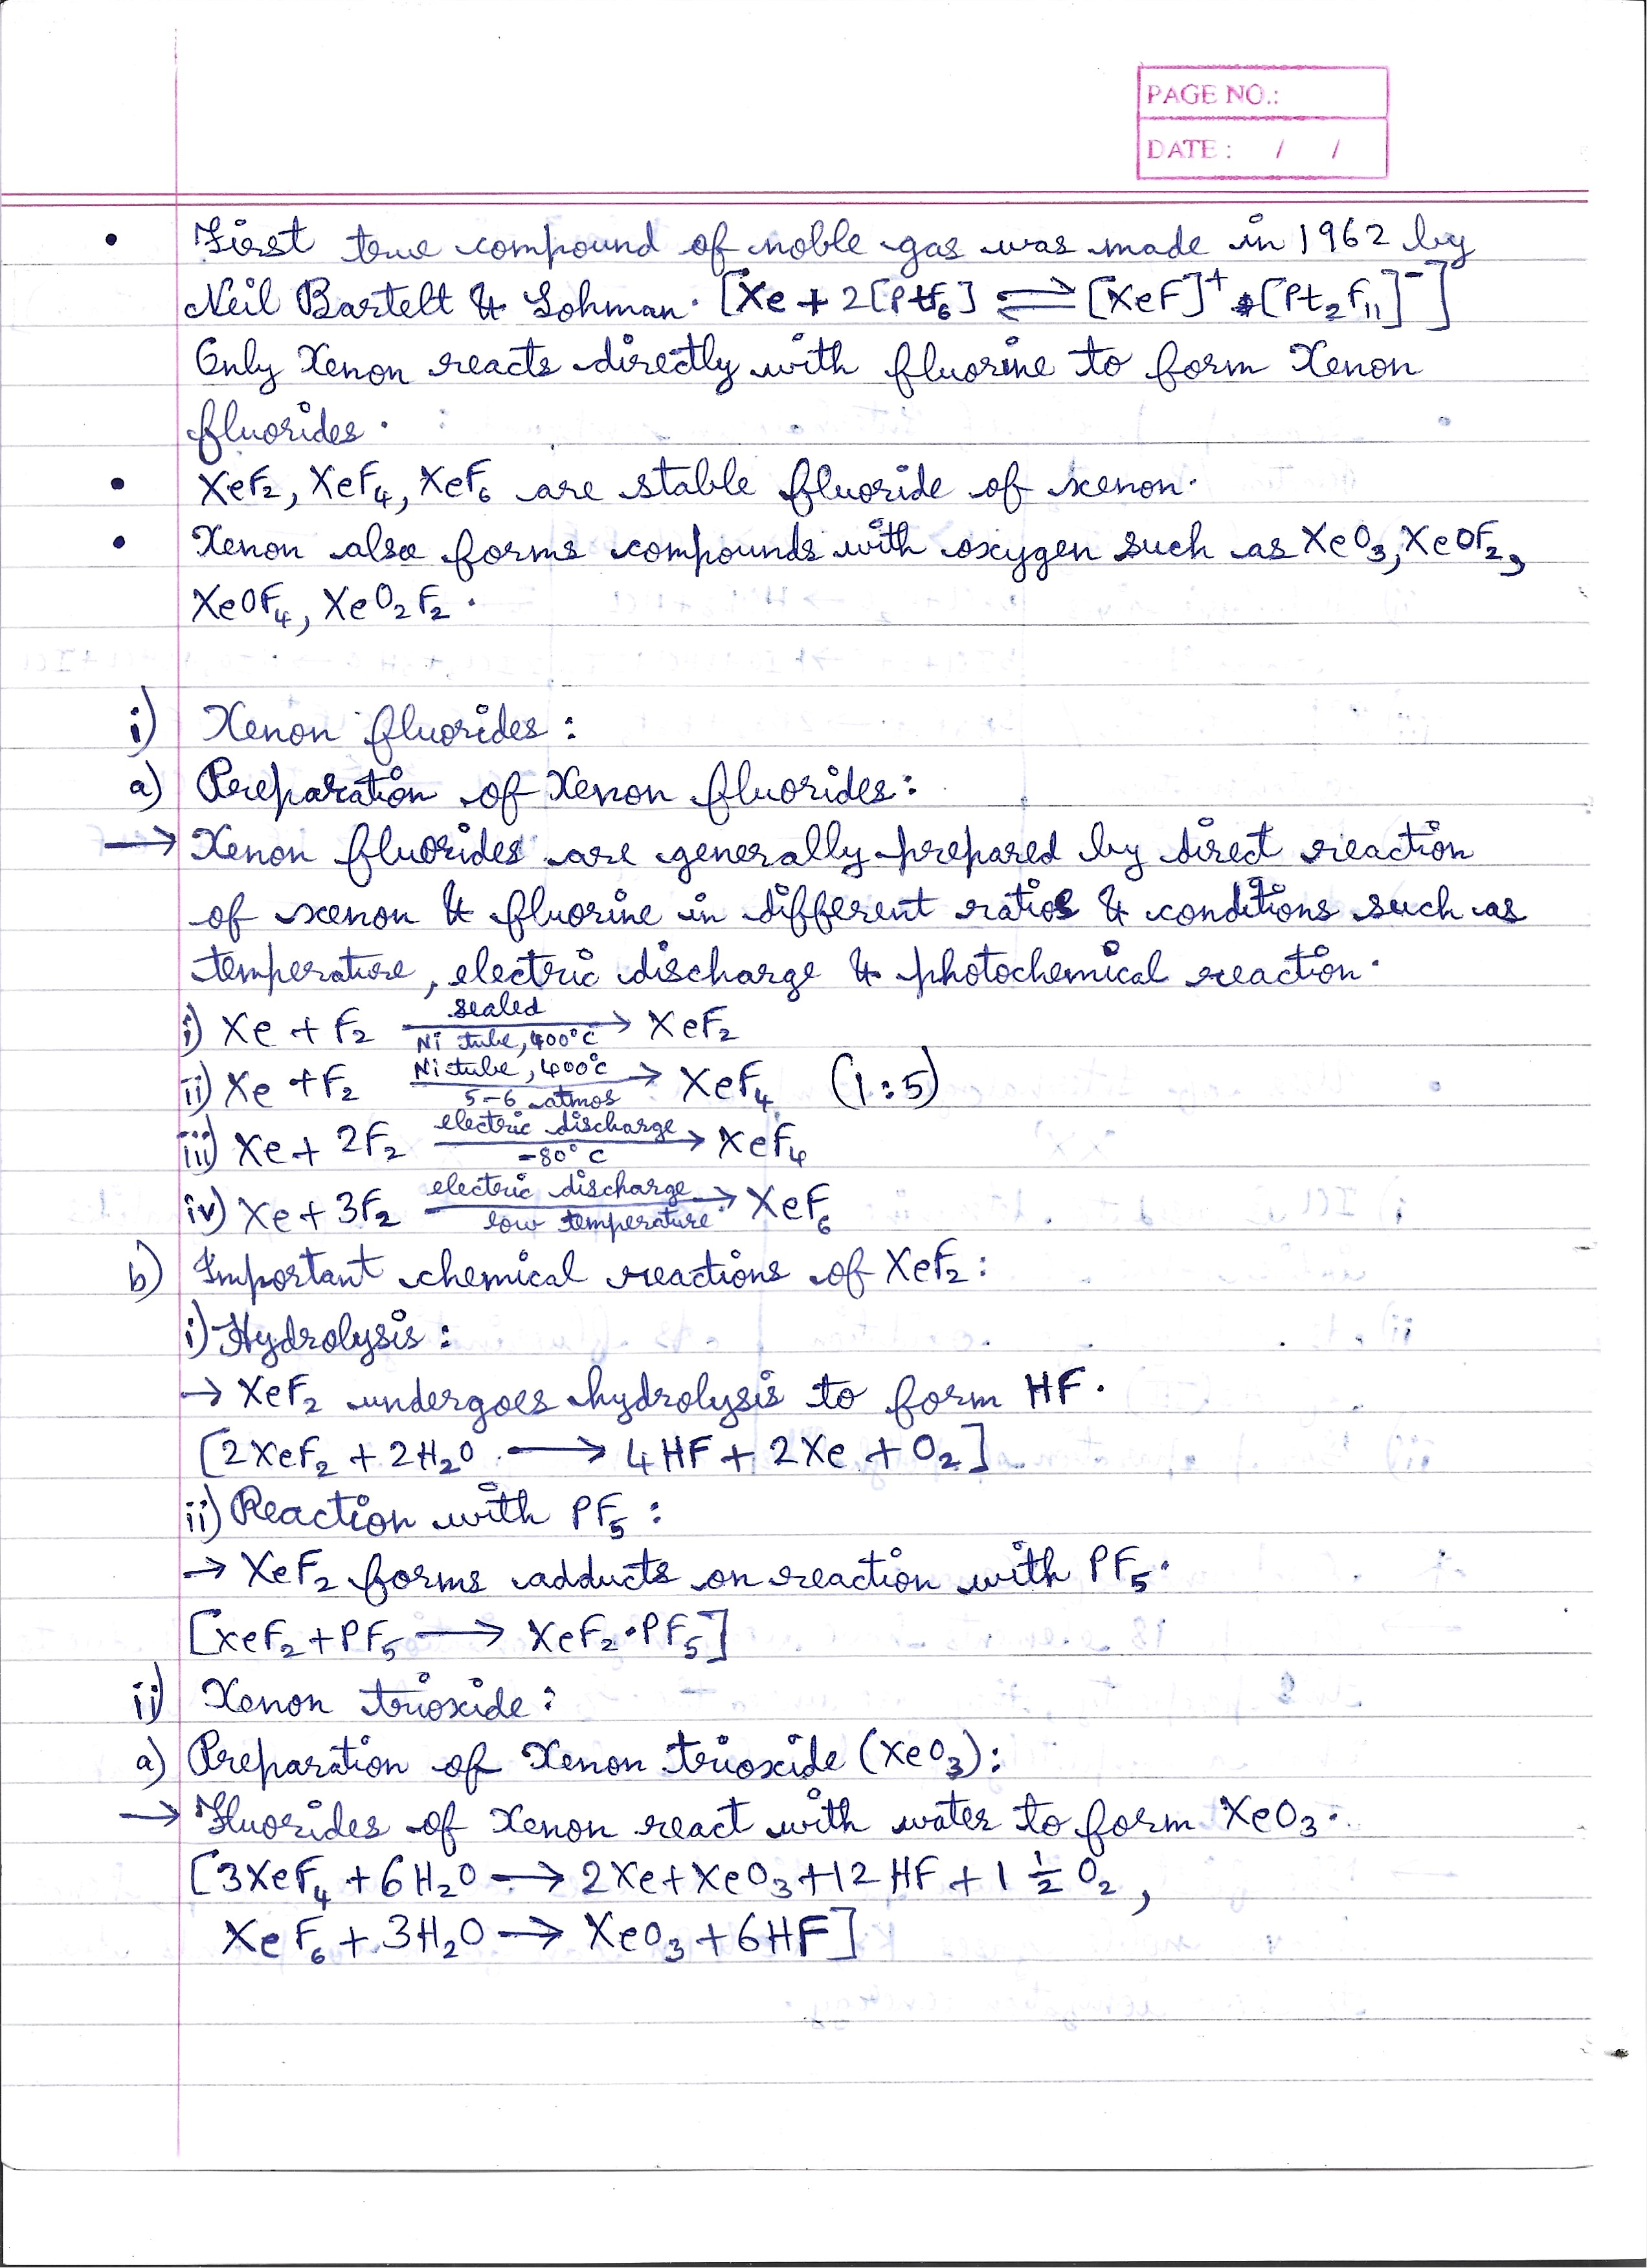 PAGE NO.:
DATE : / /
• First true compound of noble gas was made in 1962 by
Neil Bartelt & Lohman. [Xe + 2[PtF₆] ⇌ [XeF]⁺ [Pt₂F₁₁]⁻]
Only Xenon reacts directly with fluorine to form Xenon
fluorides.
• XeF₂, XeF₄, XeF₆ are stable fluoride of xenon.
• Xenon also forms compounds with oxygen such as XeO₃, XeOF₂,
XeOF₄, XeO₂F₂.
i) Xenon fluorides :
a) Preparation of Xenon fluorides :
→ Xenon fluorides are generally prepared by direct reaction
of xenon & fluorine in different ratios & conditions such as
temperature, electric discharge & photochemical reaction.
i) Xe + F₂ sealed Ni tube, 400°C → XeF₂
ii) Xe + F₂ Ni tube, 400°C 5-6 atmos → XeF₄ (1:5)
iii) Xe + 2F₂ electric discharge -80°C → XeF₄
iv) Xe + 3F₂ electric discharge low temperature → XeF₆
b) Important chemical reactions of XeF₂ :
i) Hydrolysis :
→ XeF₂ undergoes hydrolysis to form HF.
[2XeF₂ + 2H₂O → 4HF + 2Xe + O₂]
ii) Reaction with PF₅ :
→ XeF₂ forms adducts on reaction with PF₅.
[XeF₂ + PF₅ → XeF₂•PF₅]
ii) Xenon trioxide :
a) Preparation of Xenon trioxide (XeO₃) :
→ Fluorides of Xenon react with water to form XeO₃.
[3XeF₄ + 6H₂O → 2Xe + XeO₃ + 12HF + 1 ½ O₂,
XeF₆ + 3H₂O → XeO₃ + 6HF]